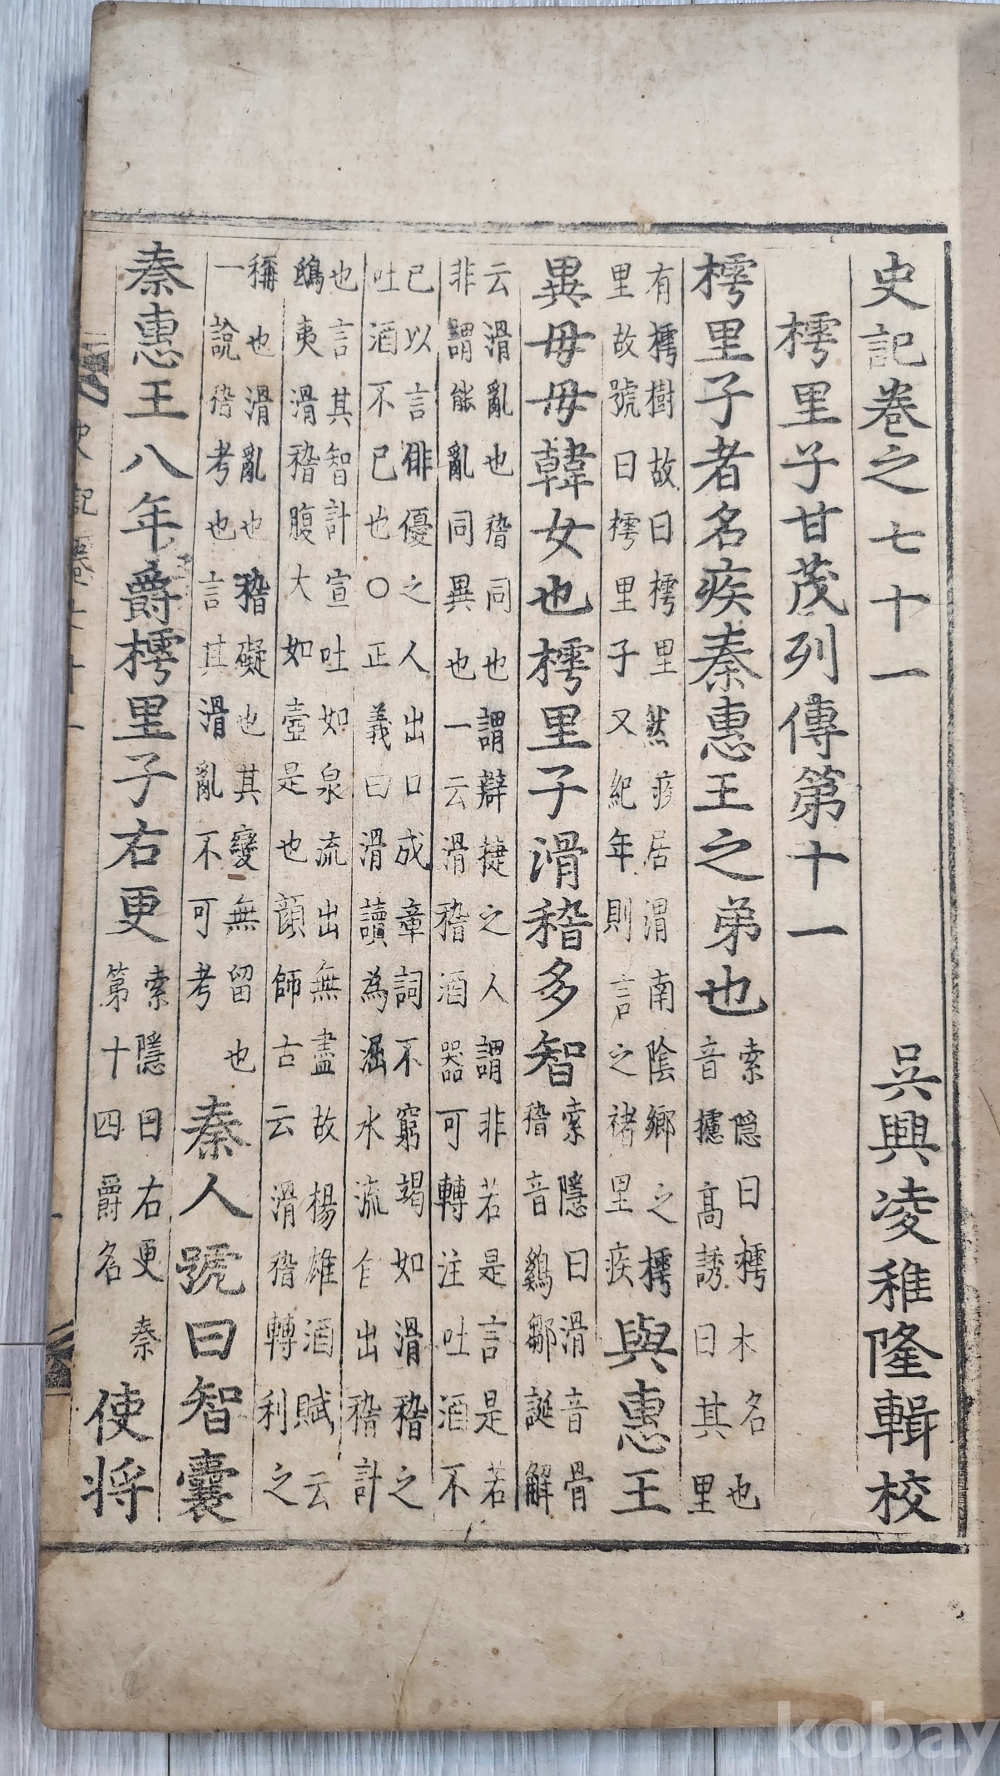 史記卷之七十一 吳興凌稚隆輯校
樗里子甘茂列傳第十一
樗里子者名疾秦惠王之弟也索隱曰樗木名也音攄高誘曰其里
有樗樹故曰樗里然疾居渭南陰鄉之樗里故號曰樗里子又紀年則言之褚里疾與惠王
異母母韓女也樗里子滑稽多智索隱曰滑音骨稽音鷄鄒誕解
云滑亂也稽同也謂辯捷之人謂非若是言是若非謂能亂同異也一云滑稽酒器可轉注吐酒不
已以言俳優之人出口成章詞不窮竭如滑稽之吐酒不已也○正義曰滑讀為淈水流自出稽計
也言其智計宣吐如泉流出無盡故楊雄酒賦云鴟夷滑稽腹大如壺是也顔師古云滑稽轉利之
稱也滑亂也稽礙也其變無留也一說稽考也言其滑亂不可考 秦人號曰智囊
秦惠王八年爵樗里子右更索隱曰右更秦第十四爵名使將
史記卷七十一
kobay